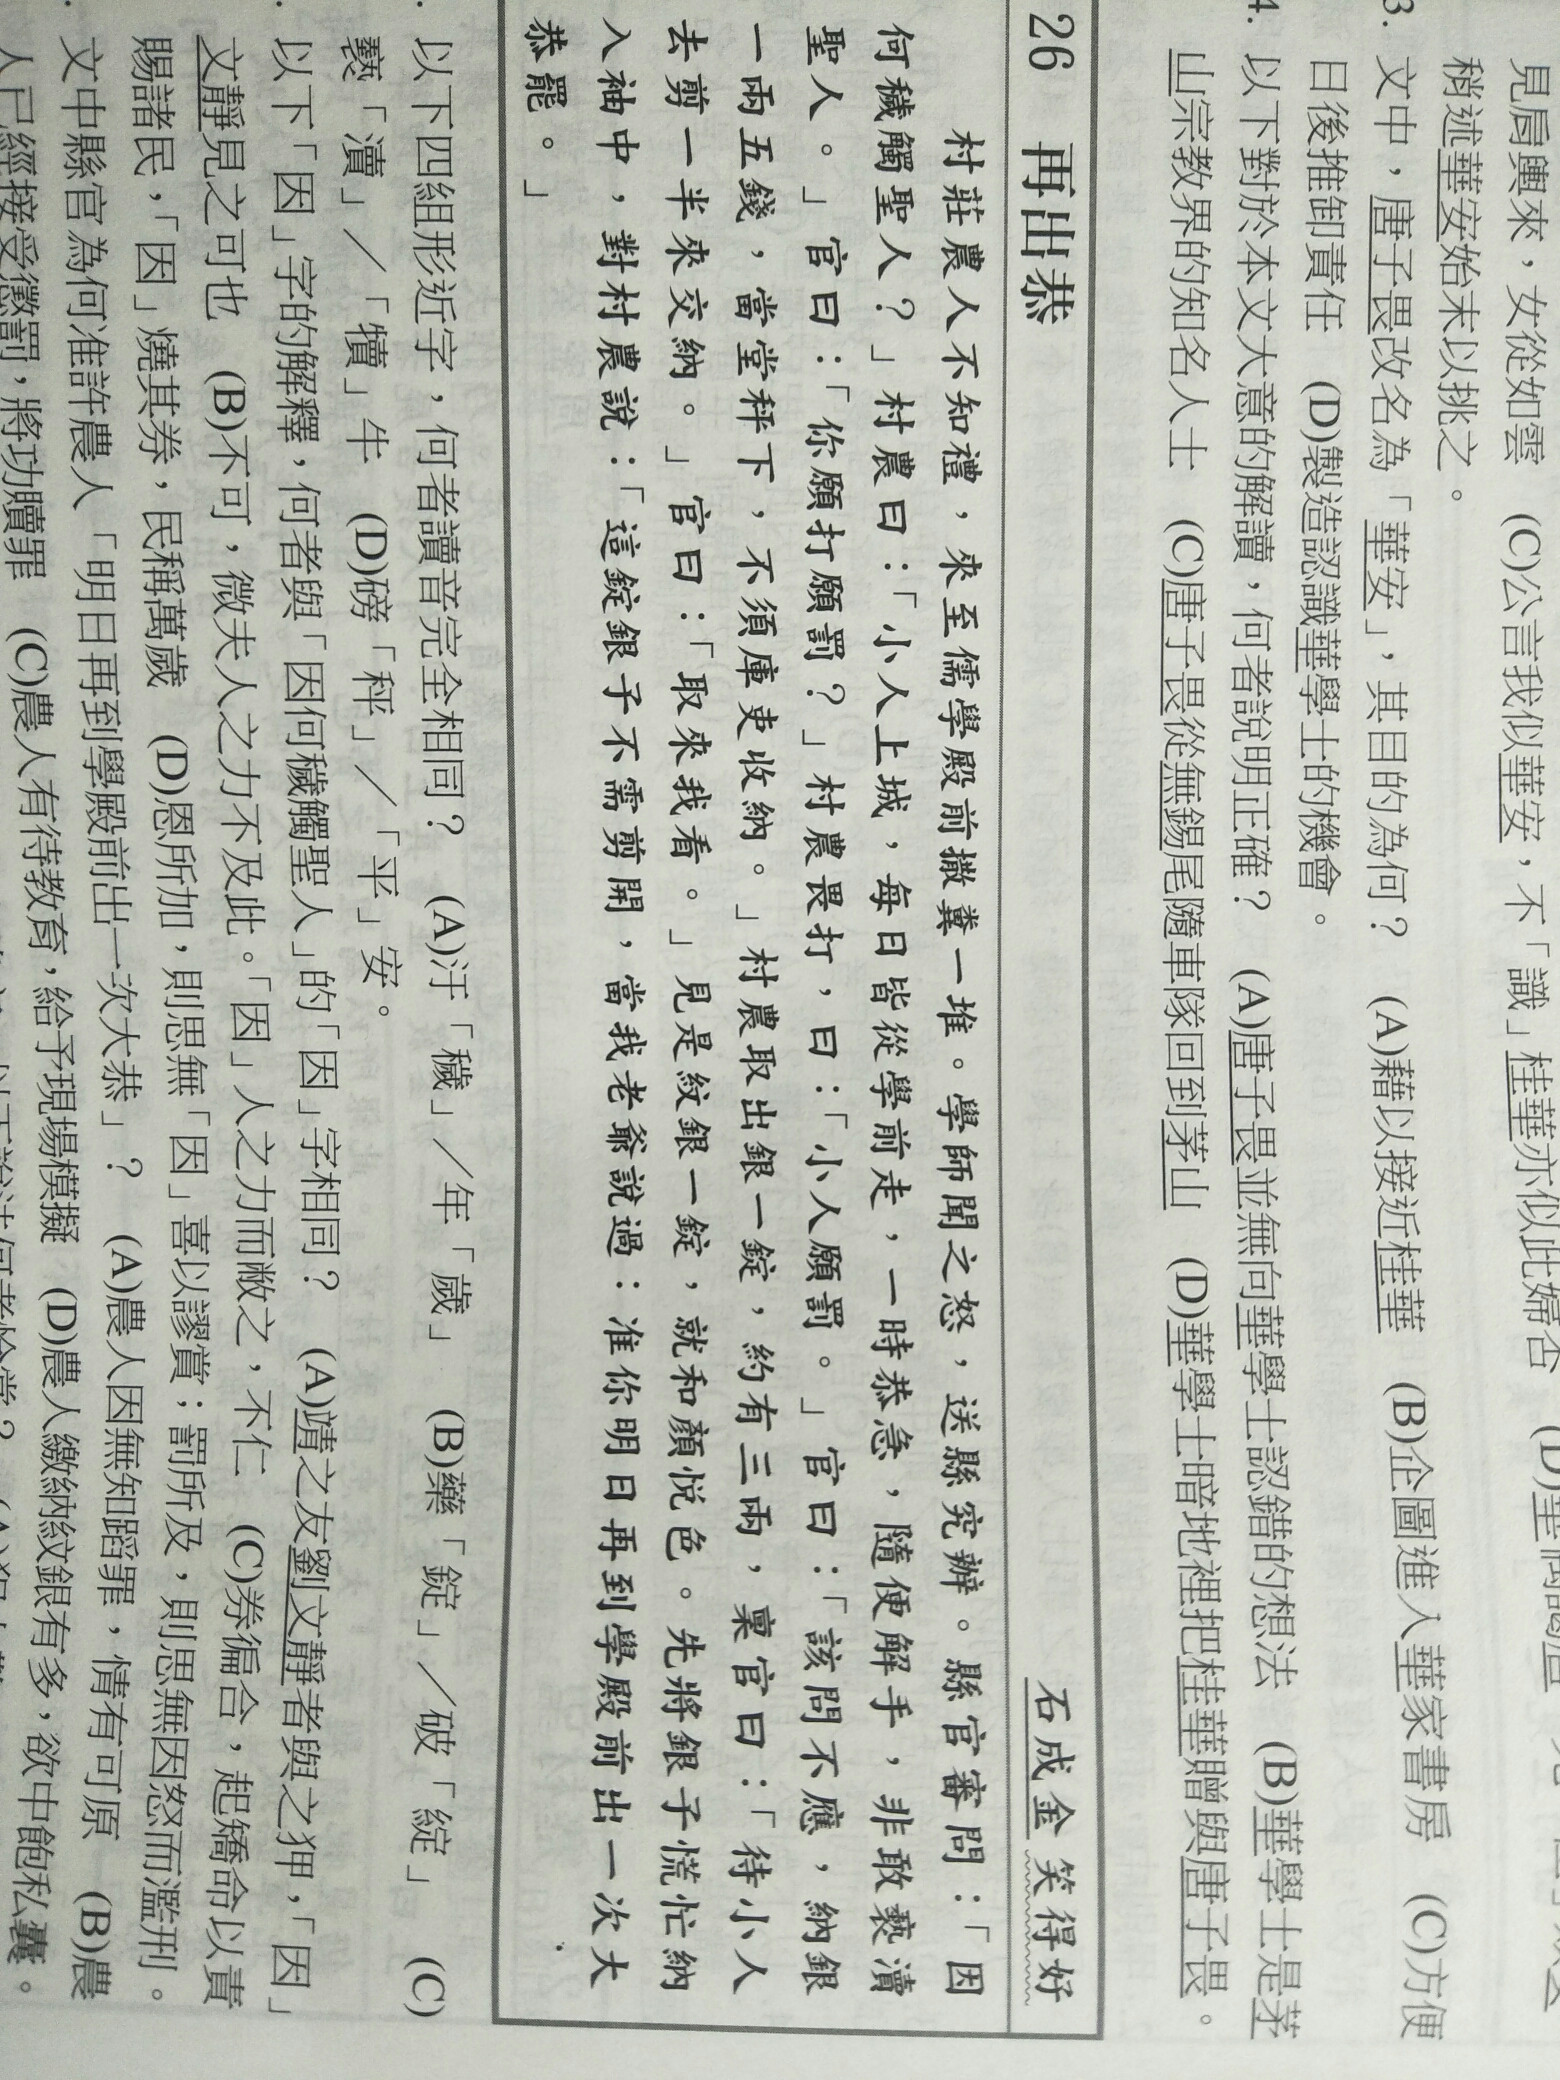 見肩輿來，女從如雲　(C)公言我似華安，不「識」桂華亦似此婦否　(D)
稍述華安始末以挑之。
3. 文中，唐子畏改名為「華安」，其目的為何？　(A)藉以接近桂華　(B)企圖進入華家書房　(C)方便
日後推卸責任　(D)製造認識華學士的機會。
4. 以下對於本文大意的解讀，何者說明正確？　(A)唐子畏並無向華學士認錯的想法　(B)華學士是茅
山宗教界的知名人士　(C)唐子畏從無錫尾隨車隊回到茅山　(D)華學士暗地裡把桂華贈與唐子畏。
26　再出恭　石成金 笑得好
村莊農人不知禮，來至儒學殿前撒糞一堆。學師聞之怒，送縣究辦。縣官審問：「因
何穢觸聖人？」村農曰：「小人上城，每日皆從學前走，一時恭急，隨便解手，非敢褻瀆
聖人。」官曰：「你願打願罰？」村農畏打，曰：「小人願罰。」官曰：「該問不應，納銀
一兩五錢，當堂秤下，不須庫吏收納。」村農取出銀一錠，約有三兩，稟官曰：「待小人
去剪一半來交納。」官曰：「取來我看。」見是紋銀一錠，就和顏悅色。先將銀子慌忙納
入袖中，對村農說：「這錠銀子不需剪開，當我老爺說過：准你明日再到學殿前出一次大
恭罷。」
. 以下四組形近字，何者讀音完全相同？　(A)汙「穢」／年「歲」　(B)藥「錠」／破「綻」　(C)
褻「瀆」／「犢」牛　(D)磅「秤」／「平」安。
. 以下「因」字的解釋，何者與「因何穢觸聖人」的「因」字相同？　(A)靖之友劉文靜者與之狎，「因」
文靜見之可也　(B)不可，微夫人之力不及此。「因」人之力而敝之，不仁　(C)券徧合，起矯命以責
賜諸民，「因」燒其券，民稱萬歲　(D)恩所加，則思無「因」喜以謬賞；罰所及，則思無因怒而濫刑。
. 文中縣官為何准許農人「明日再到學殿前出一次大恭」？　(A)農人因無知蹈罪，情有可原　(B)農
人已經接受懲罰，將功贖罪　(C)農人有待教育，給予現場模擬　(D)農人繳納紋銀有多，欲中飽私囊。